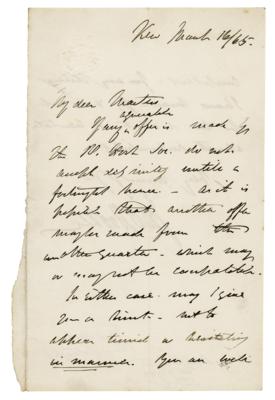 Kew March 16/65.
My dear Masters
agreeable
If any offer is made by
the Rl. Hort Soc. do not
accept definitely until a
fortnight hence — as it is
possible that another offer
may be made from
another quarter — which may
or may not be compatible.
In either case may I give
you a hint — not to
appear timid or hesitating
in manner. You are well